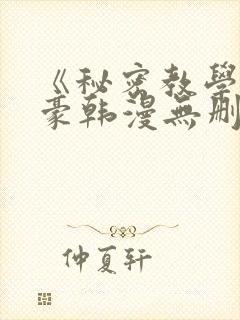 《秘密教學
豪韩漫無刪
仲夏轩